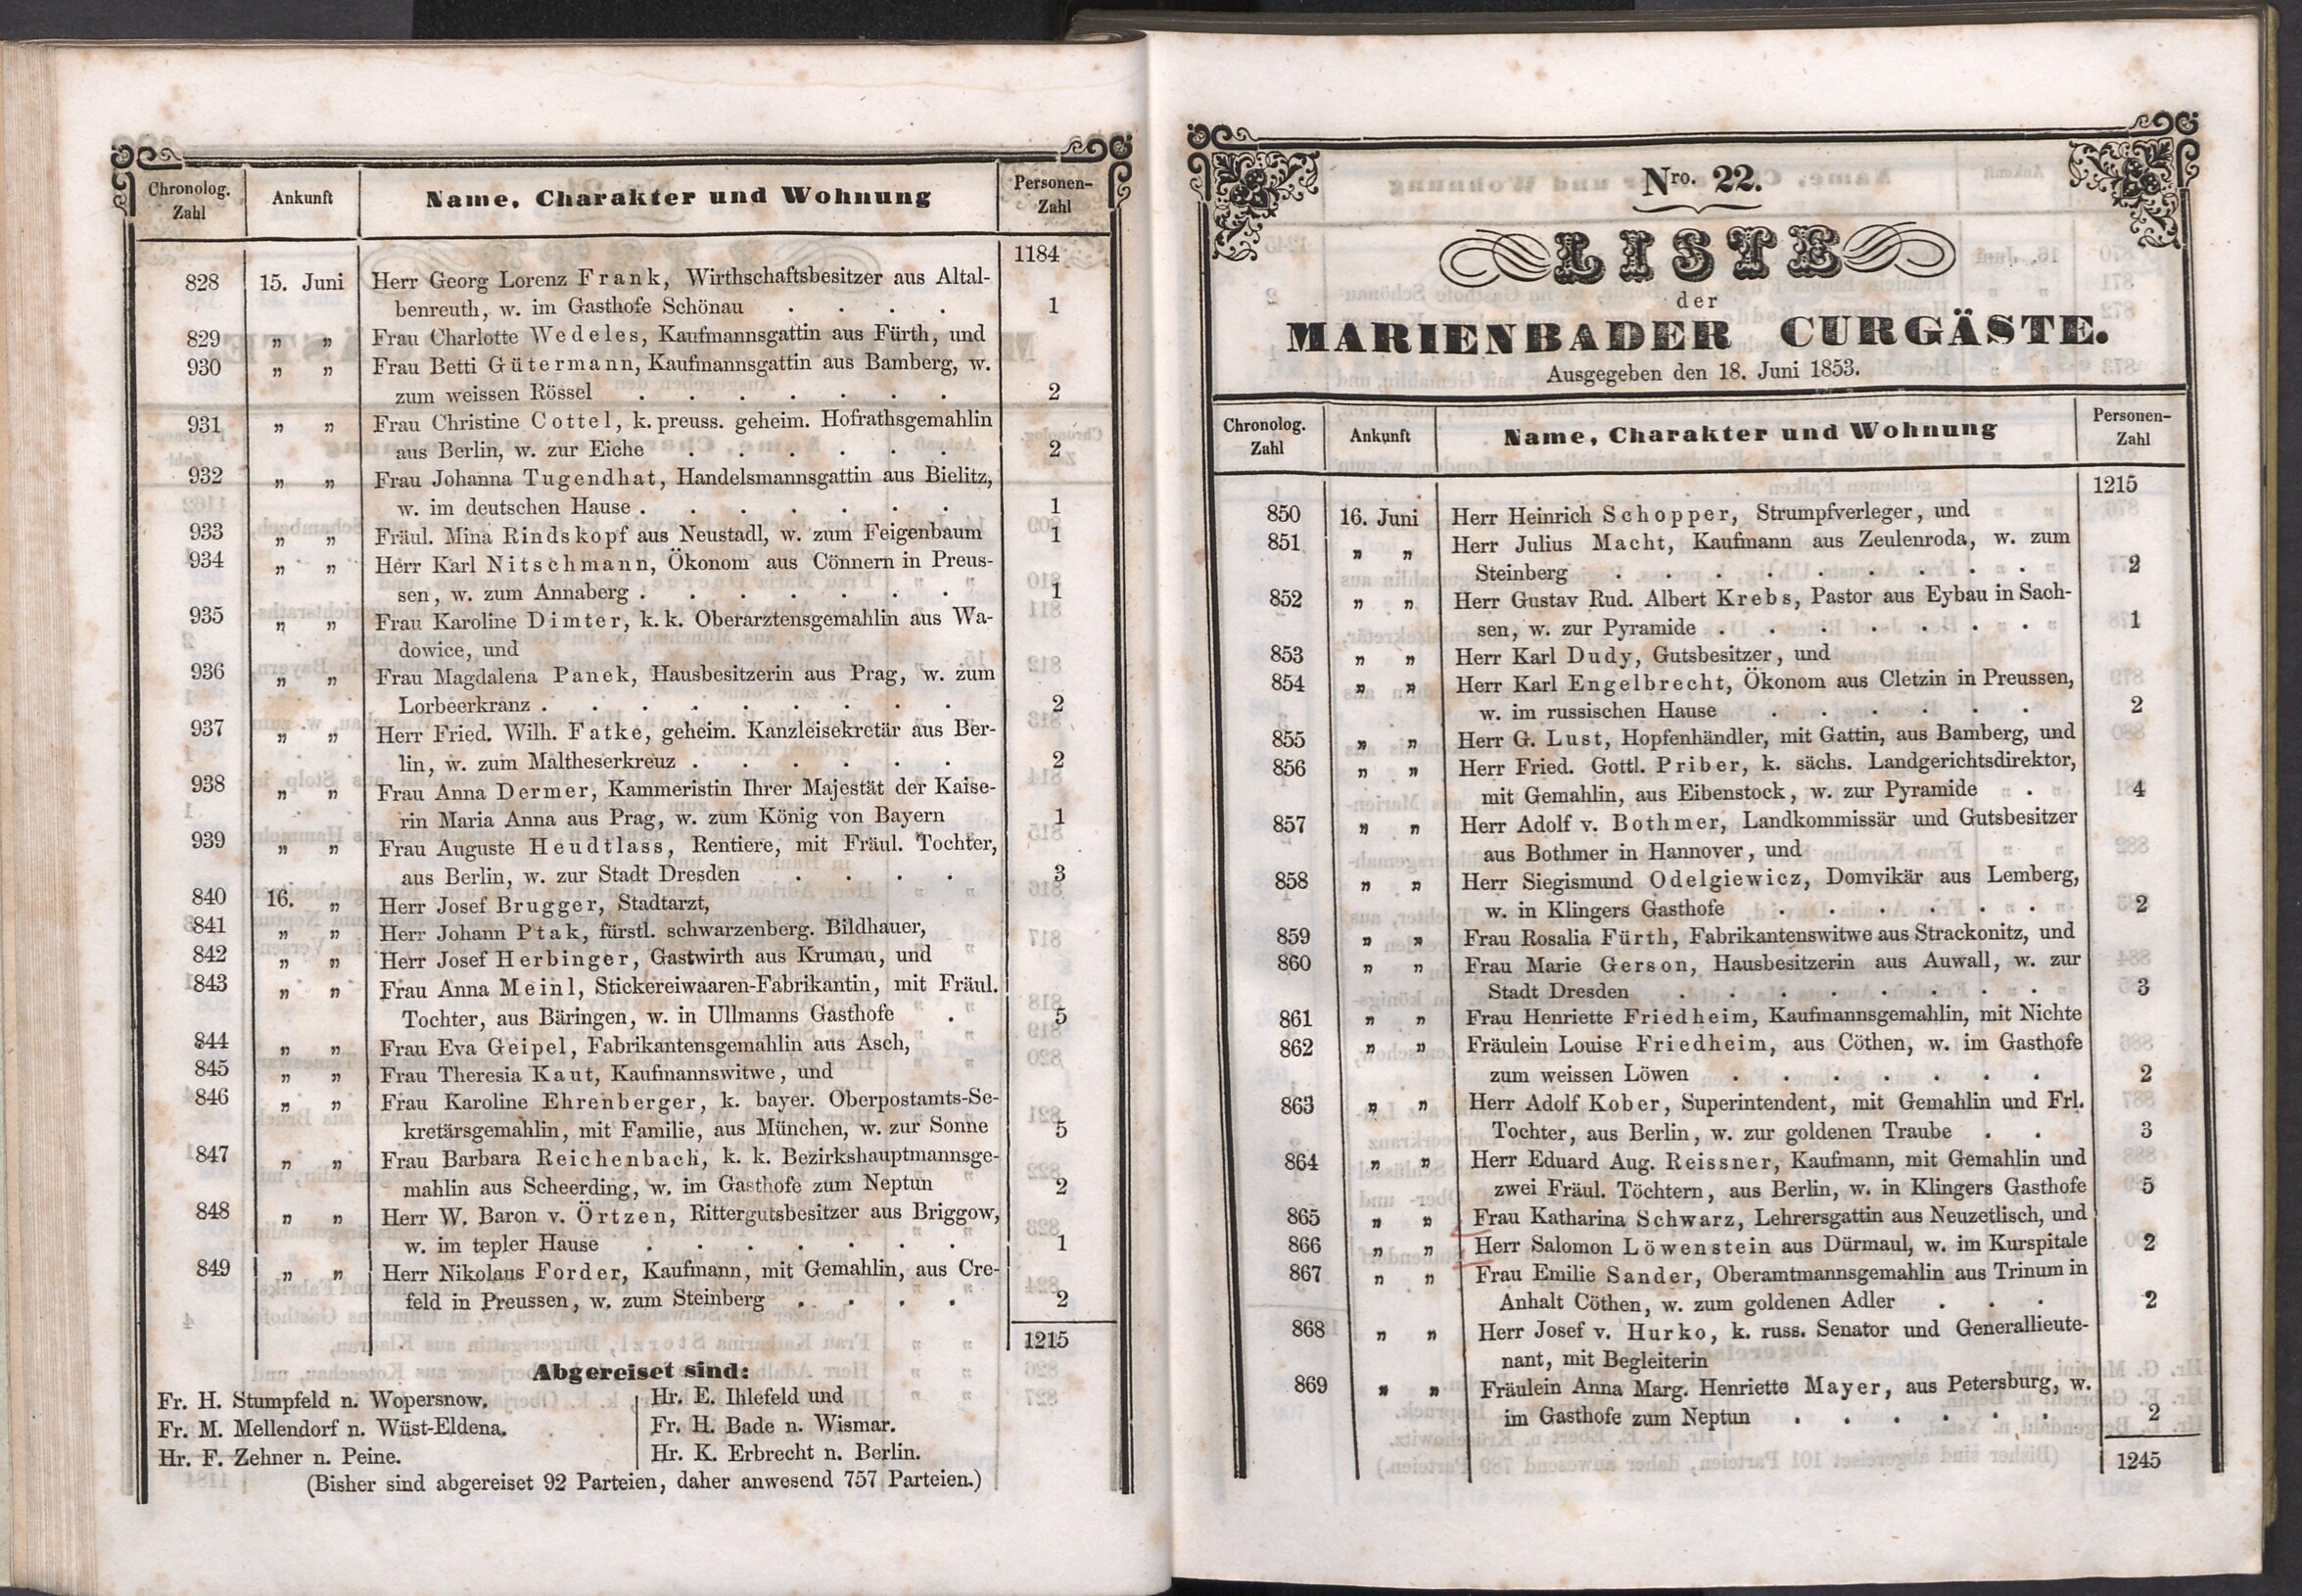 Chronolog. Zahl | Ankunft | Name, Charakter und Wohnung | Personen-Zahl
1184
828 15. Juni Herr Georg Lorenz Frank, Wirthschaftsbesitzer aus Altal-
benreuth, w. im Gasthofe Schönau . . . . 1
829 „ „ Frau Charlotte Wedeles, Kaufmannsgattin aus Fürth, und
930 „ „ Frau Betti Gütermann, Kaufmannsgattin aus Bamberg, w.
zum weissen Rössel . . . . . . . 2
931 „ „ Frau Christine Cottel, k. preuss. geheim. Hofrathsgemahlin
aus Berlin, w. zur Eiche . . . . . . 2
932 „ „ Frau Johanna Tugendhat, Handelsmannsgattin aus Bielitz,
w. im deutschen Hause . . . . . . . 1
933 „ „ Fräul. Mina Rindskopf aus Neustadl, w. zum Feigenbaum 1
934 „ „ Herr Karl Nitschmann, Ökonom aus Cönnern in Preus-
sen, w. zum Annaberg . . . . . . . 1
935 „ „ Frau Karoline Dimter, k. k. Oberarztensgemahlin aus Wa-
dowice, und
936 „ „ Frau Magdalena Panek, Hausbesitzerin aus Prag, w. zum
Lorbeerkranz . . . . . . . . . 2
937 „ „ Herr Fried. Wilh. Fatke, geheim. Kanzleisekretär aus Ber-
lin, w. zum Maltheserkreuz . . . . . . 2
938 „ „ Frau Anna Dermer, Kammeristin Ihrer Majestät der Kaise-
rin Maria Anna aus Prag, w. zum König von Bayern 1
939 „ „ Frau Auguste Heudtlass, Rentiere, mit Fräul. Tochter,
aus Berlin, w. zur Stadt Dresden . . . . 3
840 16. „ Herr Josef Brugger, Stadtarzt,
841 „ „ Herr Johann Ptak, fürstl. schwarzenberg. Bildhauer,
842 „ „ Herr Josef Herbinger, Gastwirth aus Krumau, und
843 „ „ Frau Anna Meinl, Stickereiwaaren-Fabrikantin, mit Fräul.
Tochter, aus Bäringen, w. in Ullmanns Gasthofe . 5
844 „ „ Frau Eva Geipel, Fabrikantensgemahlin aus Asch,
845 „ „ Frau Theresia Kaut, Kaufmannswitwe, und
846 „ „ Frau Karoline Ehrenberger, k. bayer. Oberpostamts-Se-
kretärsgemahlin, mit Familie, aus München, w. zur Sonne 5
847 „ „ Frau Barbara Reichenbach, k. k. Bezirkshauptmannsge-
mahlin aus Scheerding, w. im Gasthofe zum Neptun 2
848 „ „ Herr W. Baron v. Örtzen, Rittergutsbesitzer aus Briggow,
w. im tepler Hause . . . . . . . 1
849 „ „ Herr Nikolaus Forder, Kaufmann, mit Gemahlin, aus Cre-
feld in Preussen, w. zum Steinberg . . . . 2
1215
Abgereiset sind:
Fr. H. Stumpfeld n. Wopersnow.
Fr. M. Mellendorf n. Wüst-Eldena.
Hr. F. Zehner n. Peine.
Hr. E. Ihlefeld und
Fr. H. Bade n. Wismar.
Hr. K. Erbrecht n. Berlin.
(Bisher sind abgereiset 92 Parteien, daher anwesend 757 Parteien.)
Nro. 22.
LISTE
der
MARIENBADER CURGÄSTE.
Ausgegeben den 18. Juni 1853.
Chronolog. Zahl | Ankunft | Name, Charakter und Wohnung | Personen-Zahl
1215
850 16. Juni Herr Heinrich Schopper, Strumpfverleger, und
851 „ „ Herr Julius Macht, Kaufmann aus Zeulenroda, w. zum
Steinberg . . . . . . . . . 2
852 „ „ Herr Gustav Rud. Albert Krebs, Pastor aus Eybau in Sach-
sen, w. zur Pyramide . . . . . . . 1
853 „ „ Herr Karl Dudy, Gutsbesitzer, und
854 „ „ Herr Karl Engelbrecht, Ökonom aus Cletzin in Preussen,
w. im russischen Hause . . . . . . 2
855 „ „ Herr G. Lust, Hopfenhändler, mit Gattin, aus Bamberg, und
856 „ „ Herr Fried. Gottl. Priber, k. sächs. Landgerichtsdirektor,
mit Gemahlin, aus Eibenstock, w. zur Pyramide . 4
857 „ „ Herr Adolf v. Bothmer, Landkommissär und Gutsbesitzer
aus Bothmer in Hannover, und
858 „ „ Herr Siegismund Odelgiewicz, Domvikär aus Lemberg,
w. in Klingers Gasthofe . . . . . . 2
859 „ „ Frau Rosalia Fürth, Fabrikantenswitwe aus Strackonitz, und
860 „ „ Frau Marie Gerson, Hausbesitzerin aus Auwall, w. zur
Stadt Dresden . . . . . . . . 3
861 „ „ Frau Henriette Friedheim, Kaufmannsgemahlin, mit Nichte
862 „ „ Fräulein Louise Friedheim, aus Cöthen, w. im Gasthofe
zum weissen Löwen . . . . . . . 2
863 „ „ Herr Adolf Kober, Superintendent, mit Gemahlin und Frl.
Tochter, aus Berlin, w. zur goldenen Traube . . 3
864 „ „ Herr Eduard Aug. Reissner, Kaufmann, mit Gemahlin und
zwei Fräul. Töchtern, aus Berlin, w. in Klingers Gasthofe 5
865 „ „ Frau Katharina Schwarz, Lehrersgattin aus Neuzetlisch, und
866 „ „ Herr Salomon Löwenstein aus Dürmaul, w. im Kurspitale 2
867 „ „ Frau Emilie Sander, Oberamtmannsgemahlin aus Trinum in
Anhalt Cöthen, w. zum goldenen Adler . . . 2
868 „ „ Herr Josef v. Hurko, k. russ. Senator und Generallieute-
nant, mit Begleiterin
869 „ „ Fräulein Anna Marg. Henriette Mayer, aus Petersburg, w.
im Gasthofe zum Neptun . . . . . . 2
1245